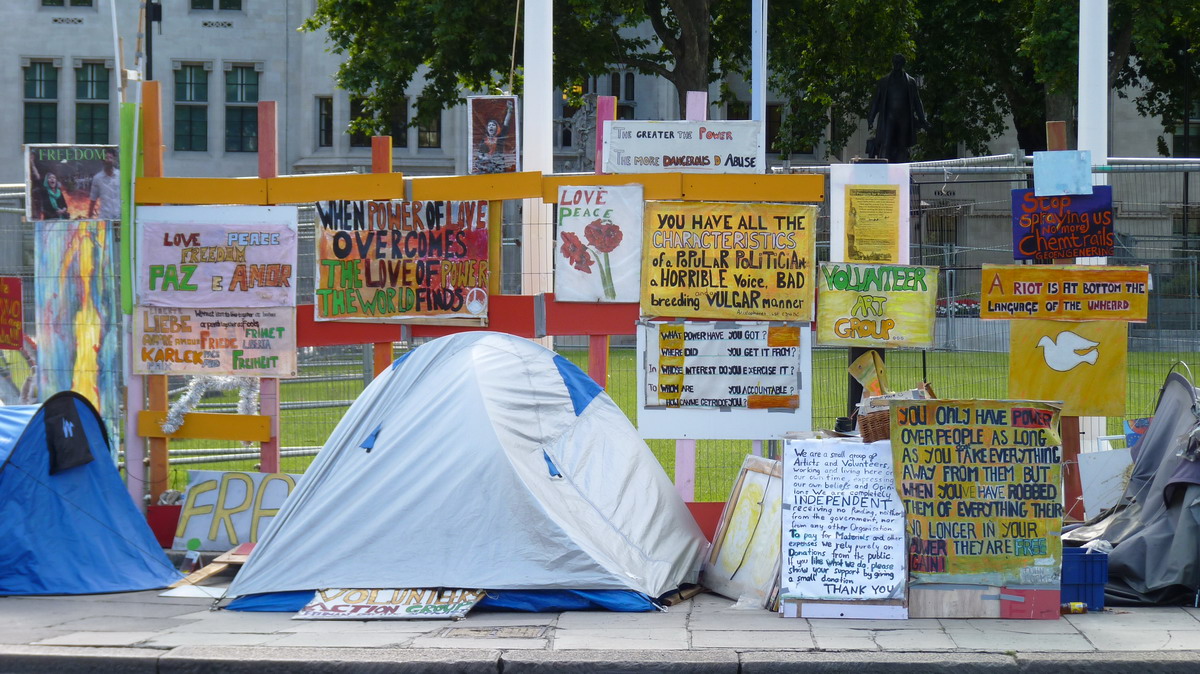 FREEDOM
LOVE PEACE
FREEDOM
PAZ E AMOR
LIEBE
FRIHET
FRIEDE
KARLEK
FREIHEIT
WHEN POWER OF LOVE
OVERCOMES
THE LOVE OF POWER
THE WORLD FINDS
LOVE
PEACE
THE GREATER THE POWER
THE MORE DANGEROUS D ABUSE
YOU HAVE ALL THE
CHARACTERISTICS
OF A POPULAR POLITICIAN
A HORRIBLE VOICE, BAD
breeding and VULGAR manner
WHAT POWER HAVE YOU GOT?
WHERE DID YOU GET IT FROM?
IN WHOSE INTEREST DO YOU EXERCISE IT?
TO WHOM ARE YOU ACCOUNTABLE?
HOW CAN WE GET RID OF YOU?
VOLUNTEER
ART
GROUP
Stop
SPRAYING US
No more
Chemtrails
GEOENGINEERING
A RIOT IS AT BOTTOM THE
LANGUAGE OF THE UNHEARD
FRA
VOLUNTEERS
ACTION GROUP
We are a small group of
Artists and Volunteers,
working and living here on
our own time, expressing
our own beliefs and Opin-
ions. We are completely
INDEPENDENT
receiving no funding, neither
from the government, nor
from any other Organisation.
To pay for Materials and other
expenses we rely purely on
Donations from the public.
If you like what we do, please
show your support by giving
a small donation
THANK YOU
YOU ONLY HAVE POWER
OVER PEOPLE AS LONG
AS YOU TAKE EVERYTHING
AWAY FROM THEM BUT
WHEN YOU'VE HAVE ROBBED
THEM OF EVERYTHING THEIR
NO LONGER IN YOUR
POWER THEY ARE FREE
AGAIN!